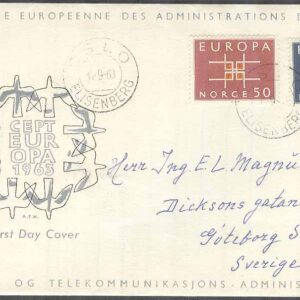 E EUROPEENNE DES ADMINISTRATIONS D
OSLO
14-9-63
ELISENBERG
EUROPA
NORGE 50
ELISENBERG
CEPT
EUR
OPA
1963
A.F.H.
rst Day Cover
Herr Ing. E.L. Magnu
Dicksons gatan
Göteborg S
Sverige
OG TELEKOMMUNIKASJONS-ADMINIS